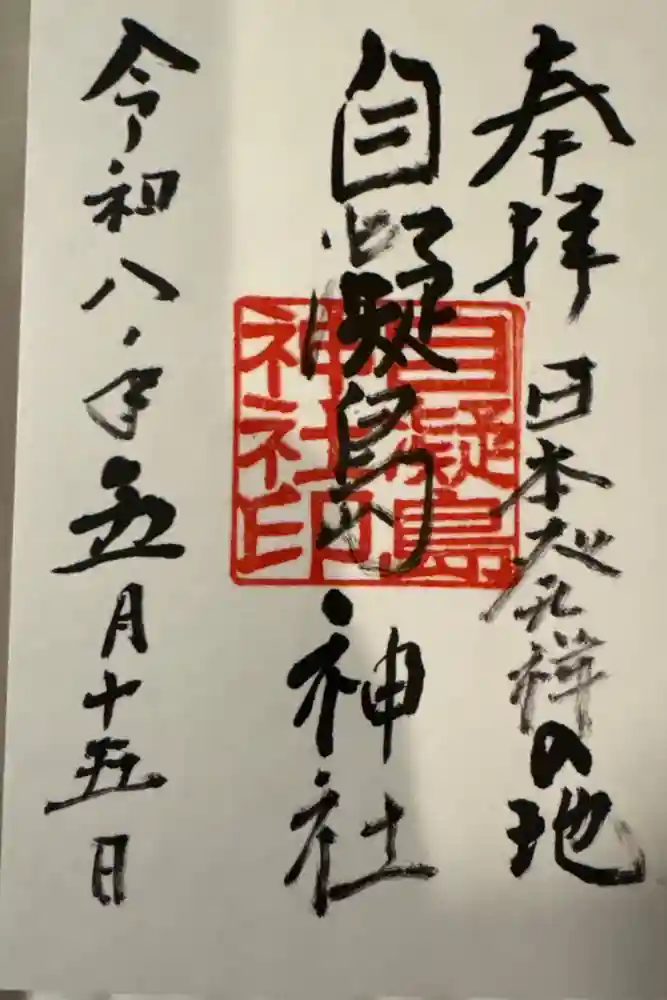 奉拝 日本発祥の地
自凝島神社
自凝島
神社印
令和八年五月十五日